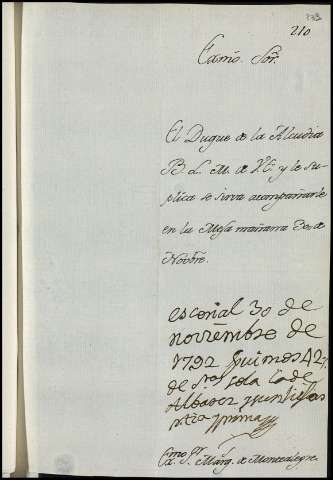 210
Exmo. Sor.
El Duque de la Alcudia
B. L. M. de V.E. y le su-
plica se sirva acompañarle
en la Mesa mañana 30 de
Novbre.
escorial 30 de
noviembre de
1792 fuimos 42
de
Exmo. Sr. Marq. de Montealegre.